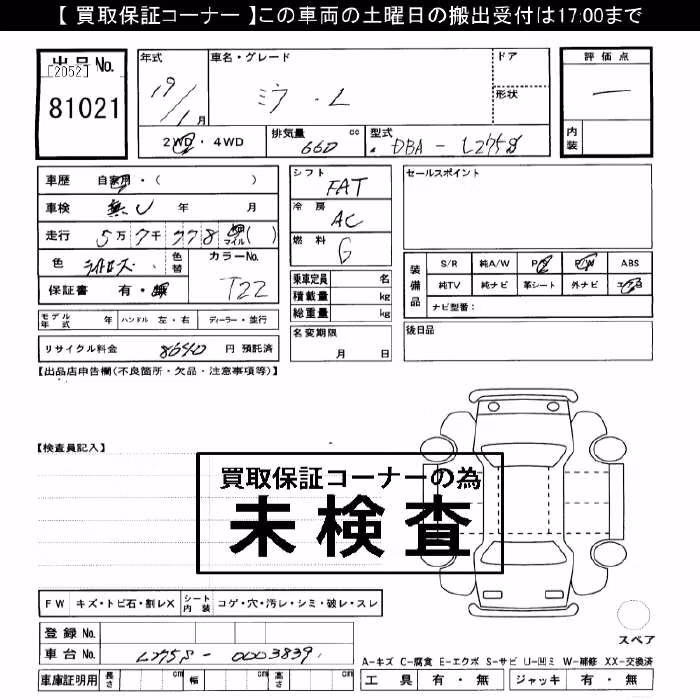 【 買取保証コーナー 】この車両の土曜日の搬出受付は17:00まで
出品No.
[2052]
81021
年式
19/1月
車名・グレード
ミラ・L
ドア
形状
評価点
―
内装
2WD・4WD
排気量 660 cc
型式 DBA - L275S
車歴 自家用・( )
車検 無し 年 月
走行 5万7千778 マイル ( )
色 ライトローズ
色替
カラーNo. T22
保証書 有・無
シフト FAT
冷房 AC
燃料 G
乗車定員 名
積載量 kg
総重量 kg
セールスポイント
装備品
S/R 純A/W P/S P/W ABS
純TV 純ナビ 革シート 外ナビ エアB
ナビ型番:
モデル年式 年 ハンドル 左・右 ディーラー・並行
名変期限 月 日
後日品
リサイクル料金 8640 円 預託済
【出品店申告欄(不良箇所・欠品・注意事項等)】
【検査員記入】
買取保証コーナーの為
未検査
FW キズ・トビ石・割レX シート内装 コゲ・穴・汚レ・シミ・破レ・スレ
登録No.
車台No. L275S - 0003839
スペア
A-キズ C-腐食 E-エクボ S-サビ U-凹ミ W-補修 XX-交換済
車庫証明用 長さ cm 幅 cm 高さ cm
工具 有・無 ジャッキ 有・無